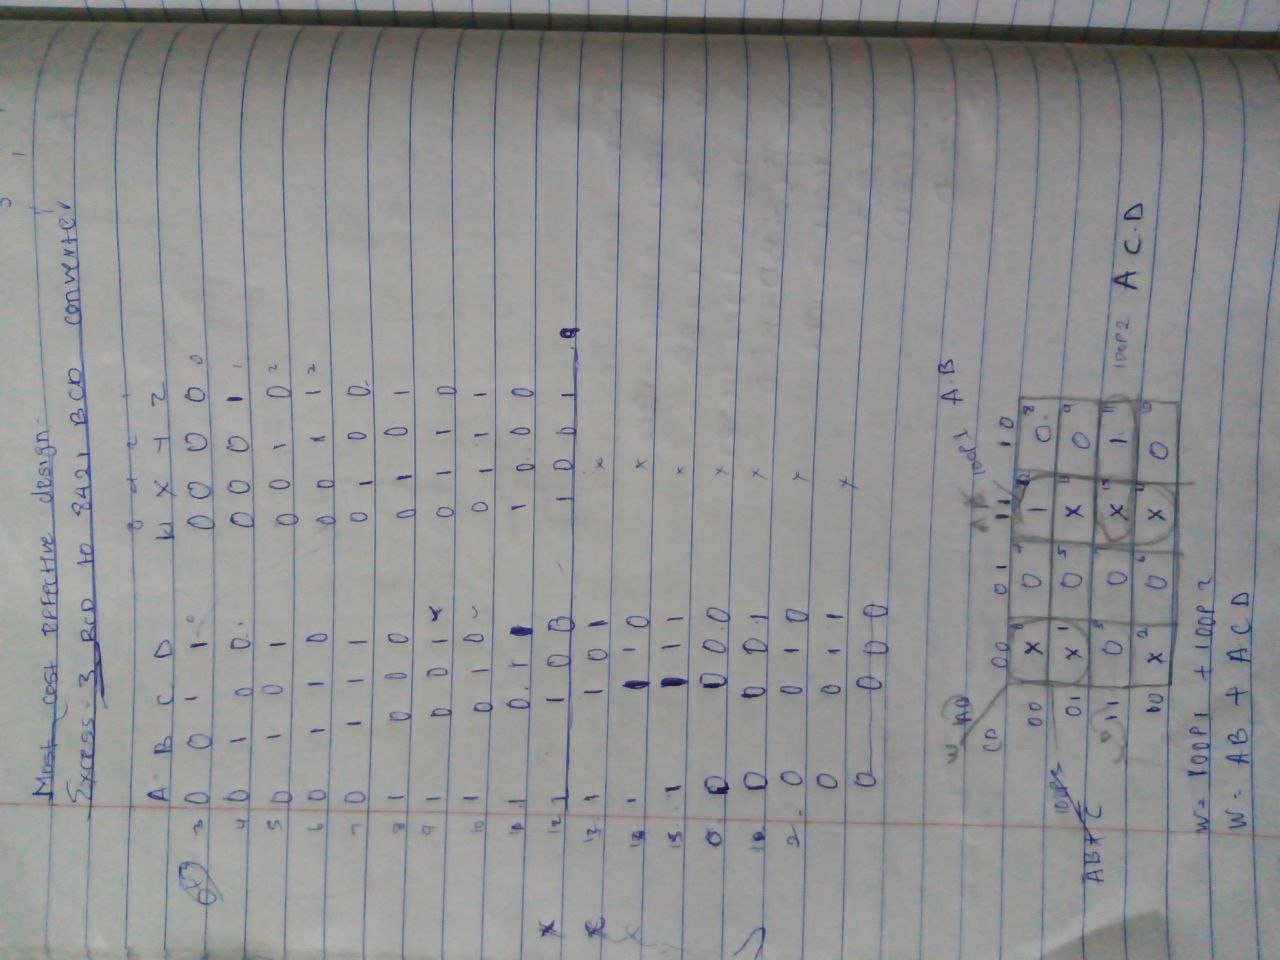 Most cost effective design
Excess-3 BCD to 8421 BCD converter
8 4 2 1
A B C D W X Y Z
3 0 0 1 1 0 0 0 0 0 0
4 0 1 0 0 0 0 0 1 1
5 0 1 0 1 0 0 1 0 2
6 0 1 1 0 0 0 1 1 2
7 0 1 1 1 0 1 0 0
8 1 0 0 0 0 1 0 1
9 1 0 0 1 0 1 1 0
10 1 0 1 0 0 1 1 1
11 1 0 1 1 1 0 0 0
x 12 1 1 0 0 1 0 0 1 9
x 13 1 1 0 1 x
x 1 1 1 0 x
15 1 1 1 1 x
0 0 0 0 0 x
0 0 0 1 x
2 0 0 1 0 x
0 0 1 1 x
0 0 0 0
W AB loop1 A.B
CD 00 01 11 10
00 x 0 4 1 12 0 8
loop3 01 x 1 0 5 x 0 9
AB + C
11 0 3 0 7 x 15 1 11 loop2 A C.D
10 x 2 0 6 x 0 10
W = loop1 + loop2
W = AB + ACD